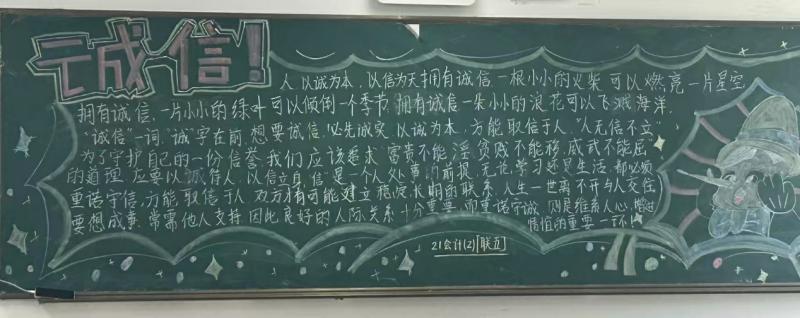 诚信!
人,以诚为本,以信为天拥有诚信,一根小小的火柴,可以燃亮一片星空,
拥有诚信,一片小小的绿叶可以倾倒一个季节,拥有诚信一朵小小的浪花可以飞溅海洋,
"诚信"一词,"诚"字在前,想要诚信,必先诚实,以诚为本,方能取信于人,"人无信不立,
为了守护自己的一份信誉,我们应该追求"富贵不能淫,贫贱不能移,威武不能屈,
的道理,应要以诚待人,以信立身,信是一个人处事的前提,无论学习还是生活,都必须
重诺守信,方能取信于人,双方才有可能建立稳定长期的联系,人生一世离不开与人交往
要想成事,常需他人支持,因此良好的人际关系十分重要,而重诺守诚,则是维系人心,增进
情谊的重要一环!
21会计(2)|联五